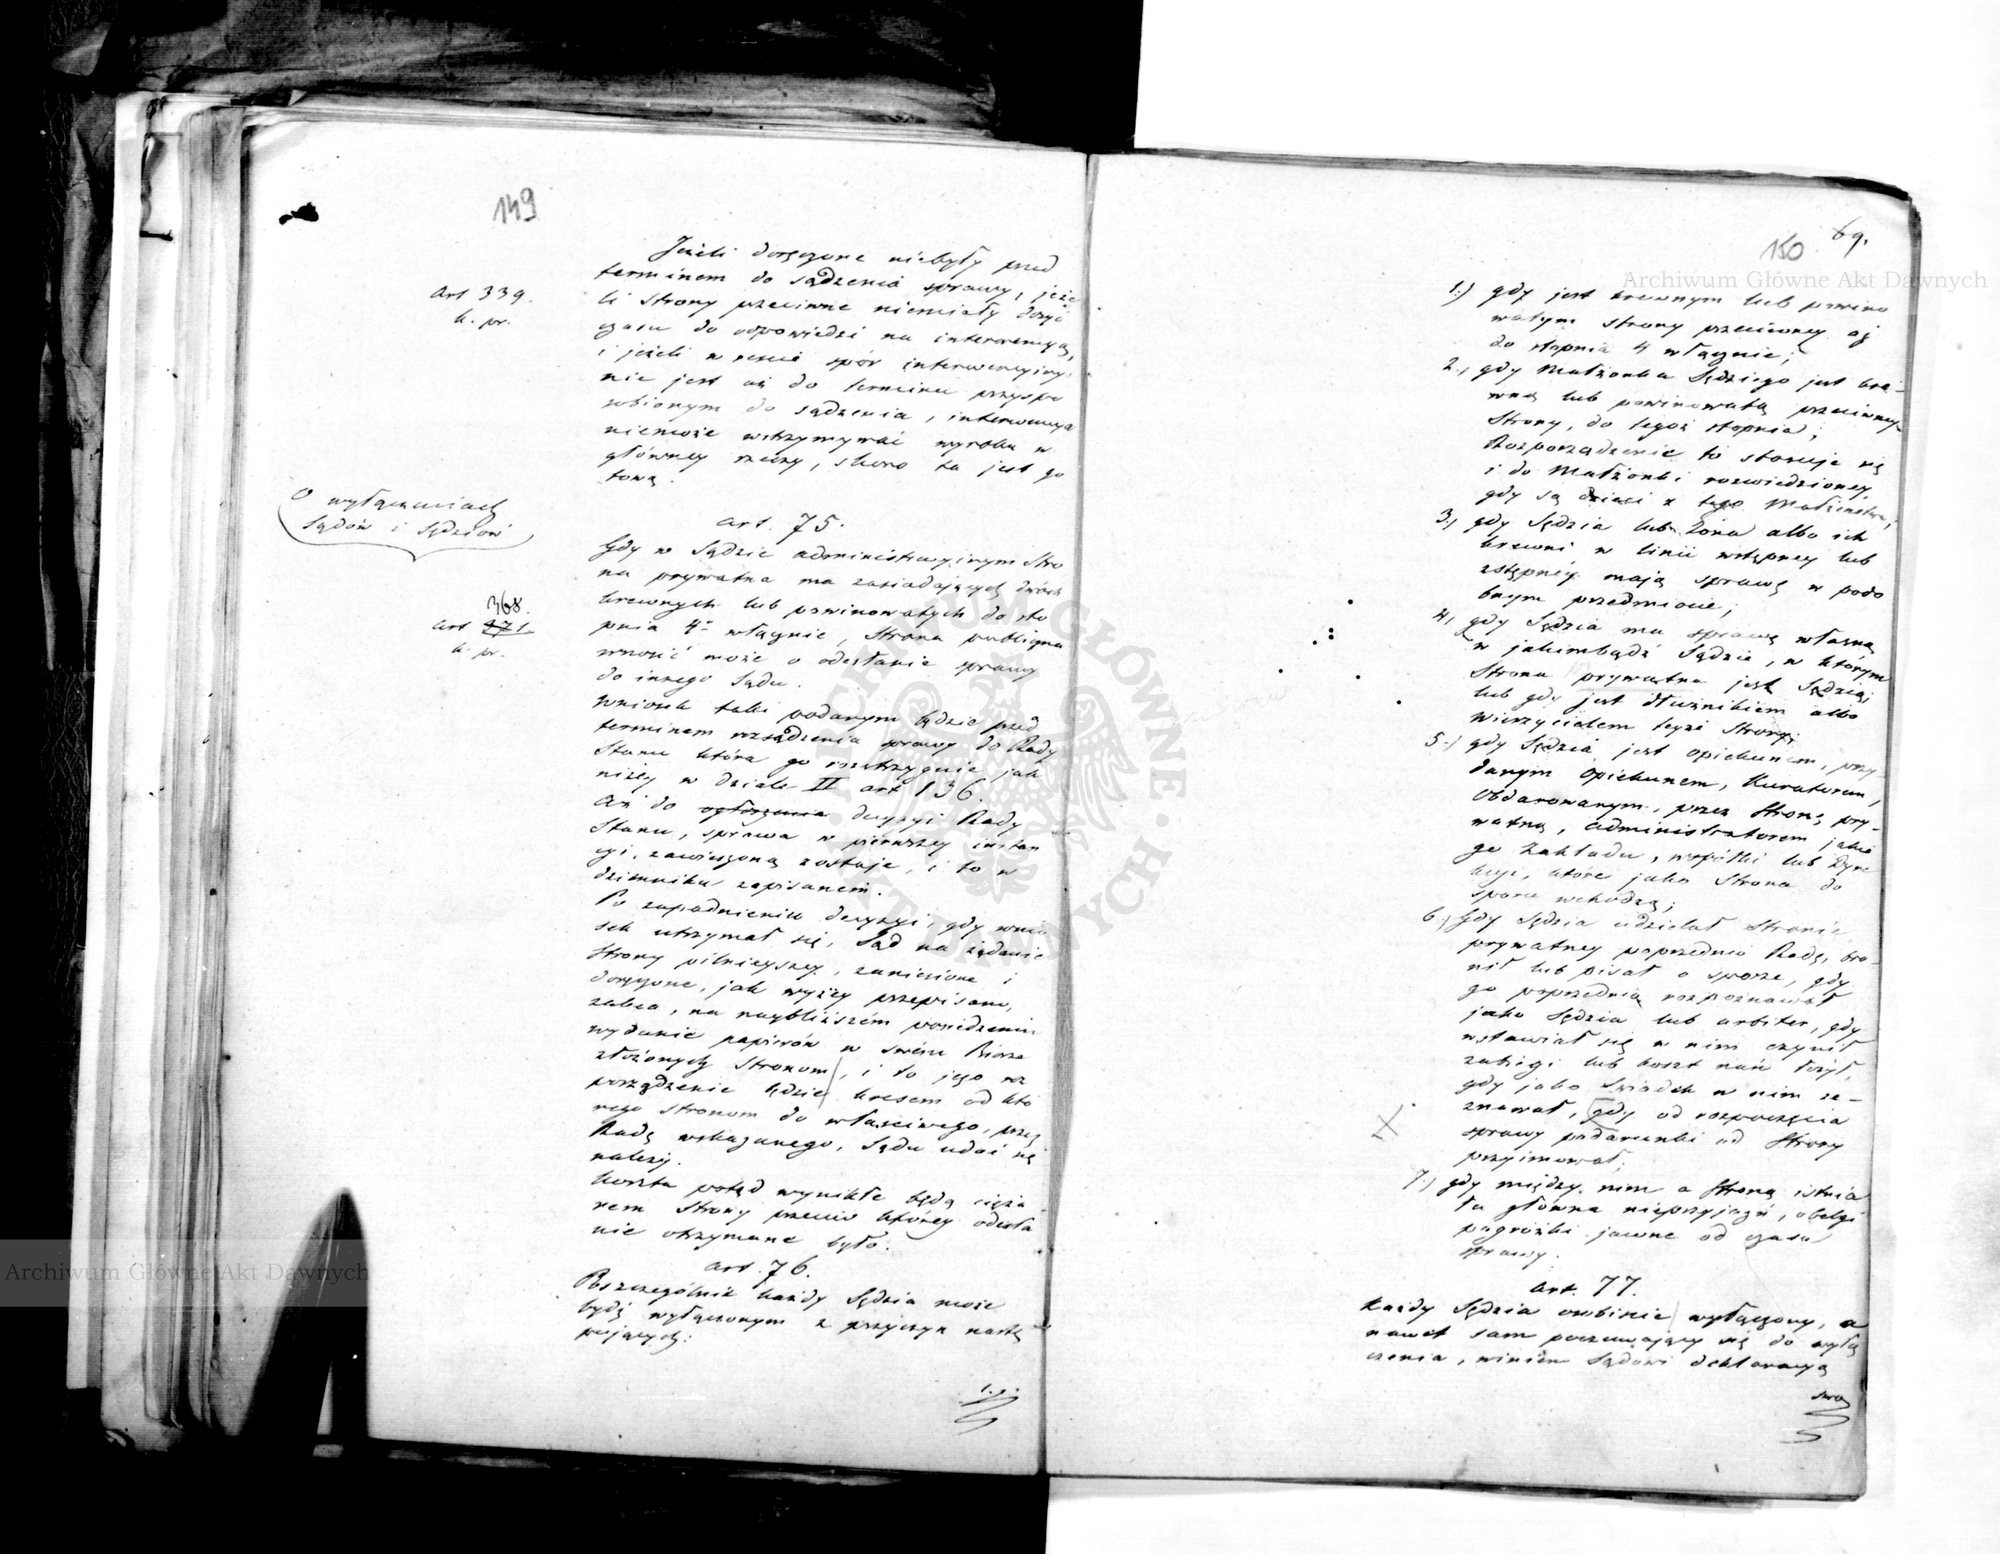 149
Jeżeli doręczone niebyły przed
terminem do sądzenia sprawy, jeże
li strony przeciwne niemiały dosyć
czasu do odpowiedzi na interwencyą,
i jeżeli w reście spór interwencyiny
nie jest aż do terminu przyspo
sobionym do sądzenia, interwencya
niemoże wstrzymywać wyroku w
główney rzeczy, skoro ta jest go
tową.
Art 339.
k. pr.
O wyłączeniach
Sądów i Sędziów
art. 75.
Gdy w Sądzie administracyinym Stro
na prywatna ma zasiadających dwóch
krewnych lub powinowatych do sto
pnia 4º włącznie, Strona publiczna
wnosić może o odesłanie sprawy
do innego Sądu.
368.
Art 371.
k. pr.
Wniosek taki podanym będzie przed
terminem osądzenia sprawy do Rady
Stanu która go rozstrzygnie jak
niżey w dziale II art 136.
Aż do ogłoszenia decyzyi Rady
Stanu, sprawa w pierwszey instan
cyi, zawieszoną zostaje, i to w
dzienniku zapisanem.
Po zapadnieniu decyzyi, gdy wnio
sek utrzymał się, Sąd na żądanie
Strony pilnieyszey, zaniesione i
doręczone, jak wyżey przepisano,
zaleca, na naybliższem posiedzeniu
wydanie papierów w swém Biorze
złożonych Stronom, i to jego roz
porządzenie będzie kresem od któ
rego stronom do właściwego, przez
Radę wskazanego, Sądu udać się
należy.
Koszta potąd wynikłe będą cięża
rem Strony przeciw którey odesła
nie otrzymane było.
art. 76.
Poszczególnie każdy Sędzia może
bydź wyłączonym z przyczyn nastę
pujących:
1.)
69.
150
1.) gdy jest krewnym lub powino
watym strony przeciwney aż
do stopnia 4 włącznie;
2., gdy Małżonka Sędziego jest kre-
wną lub powinowatą przeciwney
Strony, do tegoż stopnia;
Rozporządzenie to stosuje się
i do Małżonki rozwiedzioney
gdy są dzieci z tego Małżeństwa;
3., gdy Sędzia lub Żona albo ich
krewni w linii wstępney lub
zstępnéy mają sprawę w podo
bnym przedmiocie;
4., gdy Sędzia ma sprawę własną
w jakimbądź Sądzie, w którym
Strona prywatna jest Sędzią;
lub gdy jest dłużnikiem albo
wierzycielem teyże Strony;
5., gdy Sędzia jest opiekunem, przy
danym opiekunem, Kuratorem,
Obdarowanym, przez Stronę pry-
watną, administratorem jakie
go Zakładu, wspólki lub Dyre
kcyi, które jako Strona do
sporu wchodzą;
6., Gdy Sędzia udzielał Stronie
prywatney poprzednio Radę, bro-
nił lub pisał o sporze, gdy
go poprzednio rozpoznawał
jako Sędzia lub arbiter, gdy
wstawiał się w nim czynił
zabiegi lub koszt nań łożył,
gdy jako Swiadek w nim ze-
znawał, gdy od rozpoczęcia
sprawy podarunki od Strony
przyimował;
7., gdy między nim a Stroną istnia
ła główna nieprzyjaźń, obelgi
pogróżki jawne od czasu
sprawy.
art. 77.
Każdy Sędzia osobiście wyłączony, a
nawet sam poczuwający się do wyłą
czenia, winien Sądowi deklaracyą
swą